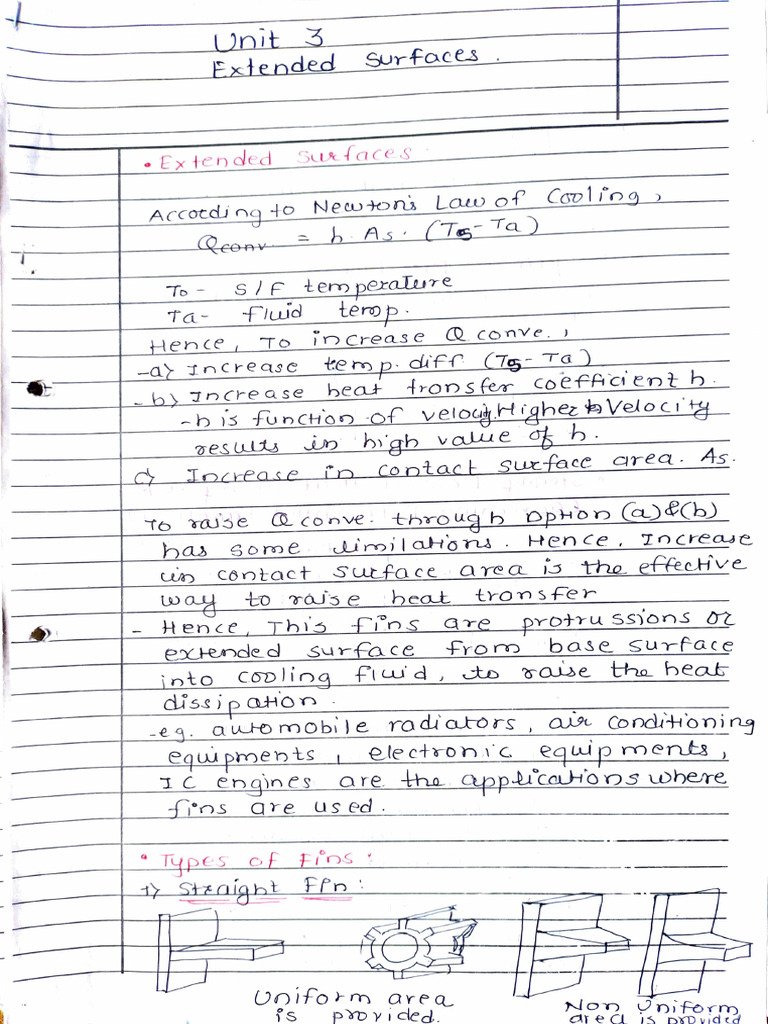 Unit 3
Extended surfaces.
• Extended surfaces
According to Newton's Law of Cooling,
Qconv = h. As. (Ts - Ta)
To - S/F temperature
Ta - fluid temp.
Hence, To increase Q conve.,
-a) Increase temp. diff (Ts - Ta)
-b) Increase heat transfer coefficient h.
-h is function of velocity. Higher Velocity
results in high value of h.
c) Increase in contact surface area. As.
To raise Q conve. through option (a)&(b)
has some limilations. Hence, Increase
in contact surface area is the effective
way to raise heat transfer
- Hence, This fins are protrussions or
extended surface from base surface
into cooling fluid, to raise the heat
dissipation.
-eg. automobile radiators, air conditioning
equipments, electronic equipments,
IC engines are the applications where
fins are used.
• Types of Fins:
1) Straight Fin:
Uniform area Non Uniform
is provided. area is provided